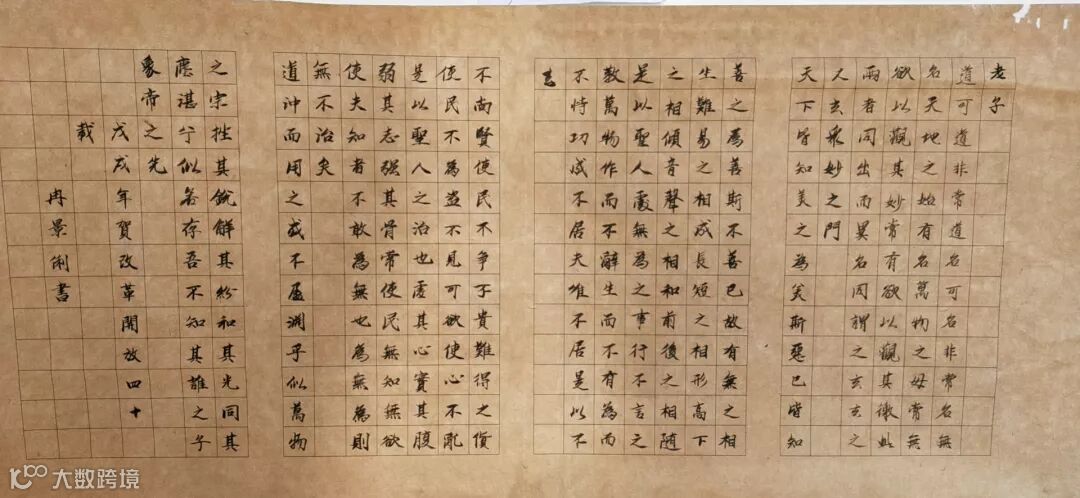 老子
道可道非常道名可名非常名無
名天地之始有名萬物之母常無
欲以觀其妙常有欲以觀其徼此
兩者同出而異名同謂之玄玄之
又玄眾妙之門
天下皆知美之為美斯惡已皆知
善之為善斯不善已故有無之相
生難易之相成長短之相形高下
之相傾音聲之相和前後之相隨
是以聖人處無為之事行不言之
教萬物作而不辭生而不有為而
不恃功成不居夫唯不居是以不
去
不尚賢使民不爭不貴難得之貨
使民不為盜不見可欲使心不亂
是以聖人之治也虛其心實其腹
弱其志強其骨常使民無知無欲
使夫知者不敢為無也為無為則
無不治矣
道沖而用之或不盈淵乎似萬物
之宗挫其銳解其紛和其光同其
塵湛兮似若存吾不知其誰之子
象帝之先
戊戌年賀改革開放四十
載
冉景俐書
大数跨境